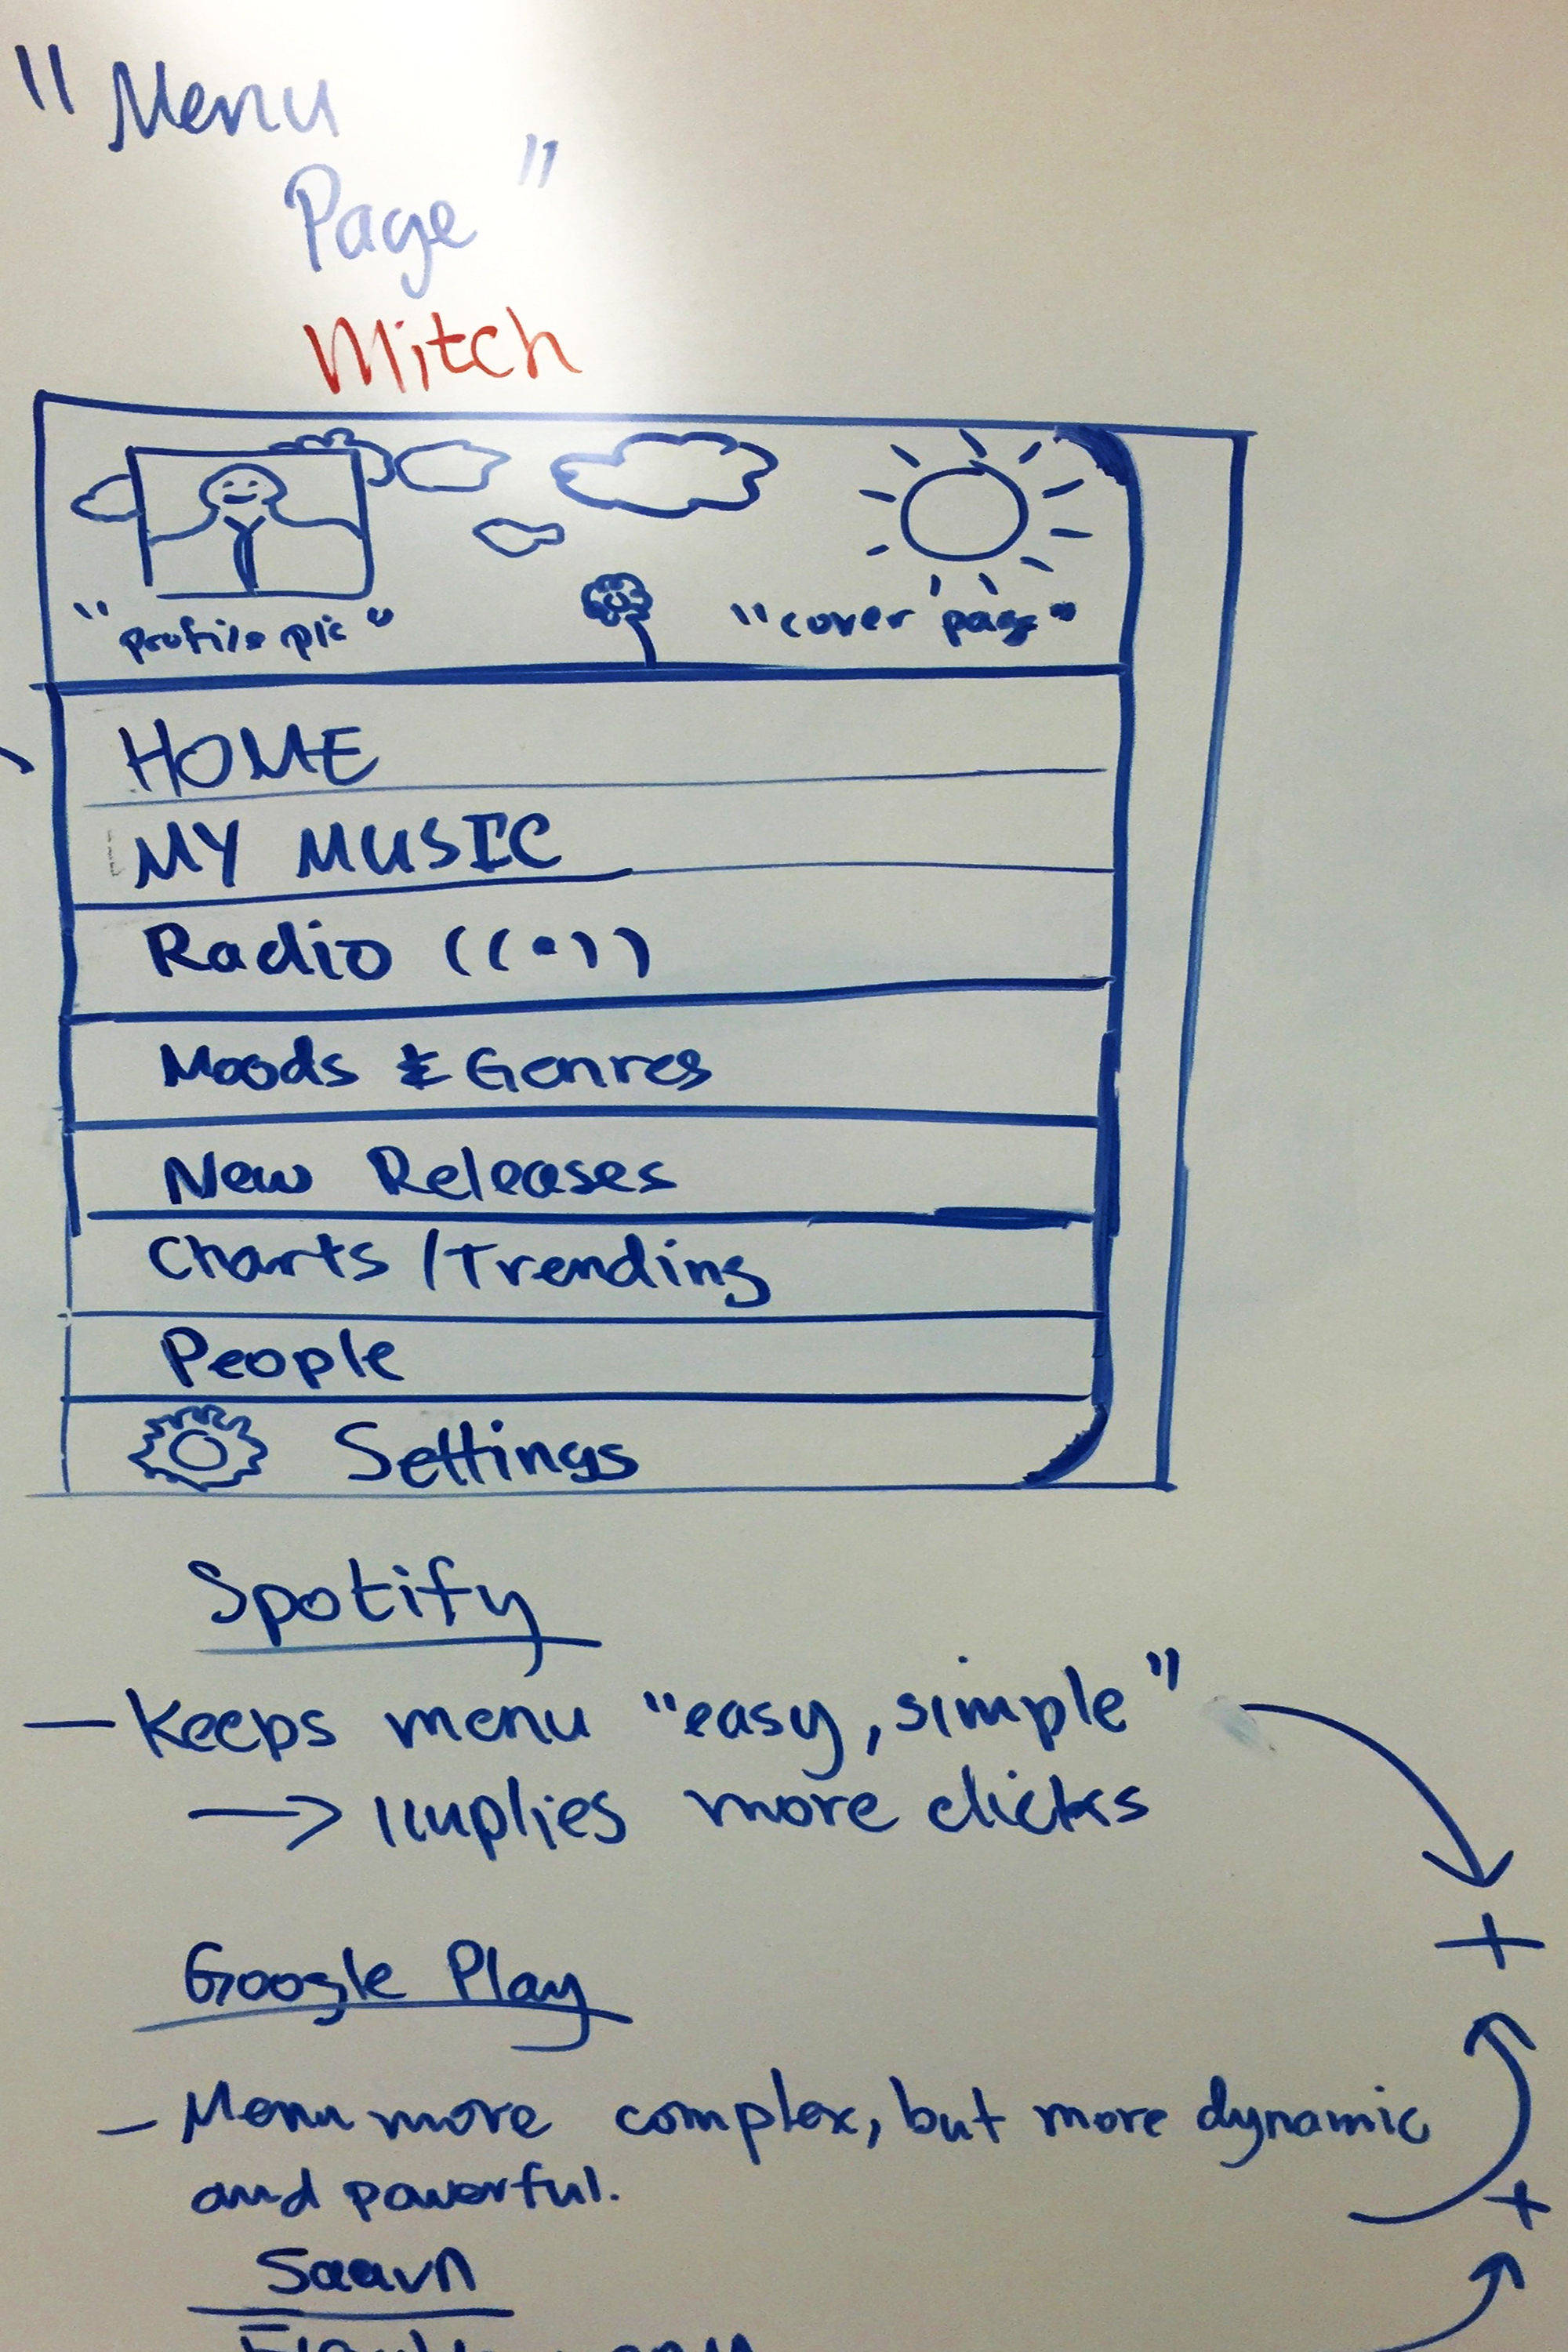 "Menu
Page"
Mitch
"profile pic" "cover page"
HOME
MY MUSIC
Radio ((•))
Moods & Genres
New Releases
Charts / Trending
People
Settings
Spotify
— Keeps menu "easy, simple"
→ implies more clicks
+
Google Play
- Menu more complex, but more dynamic
and powerful.
+
Saavn